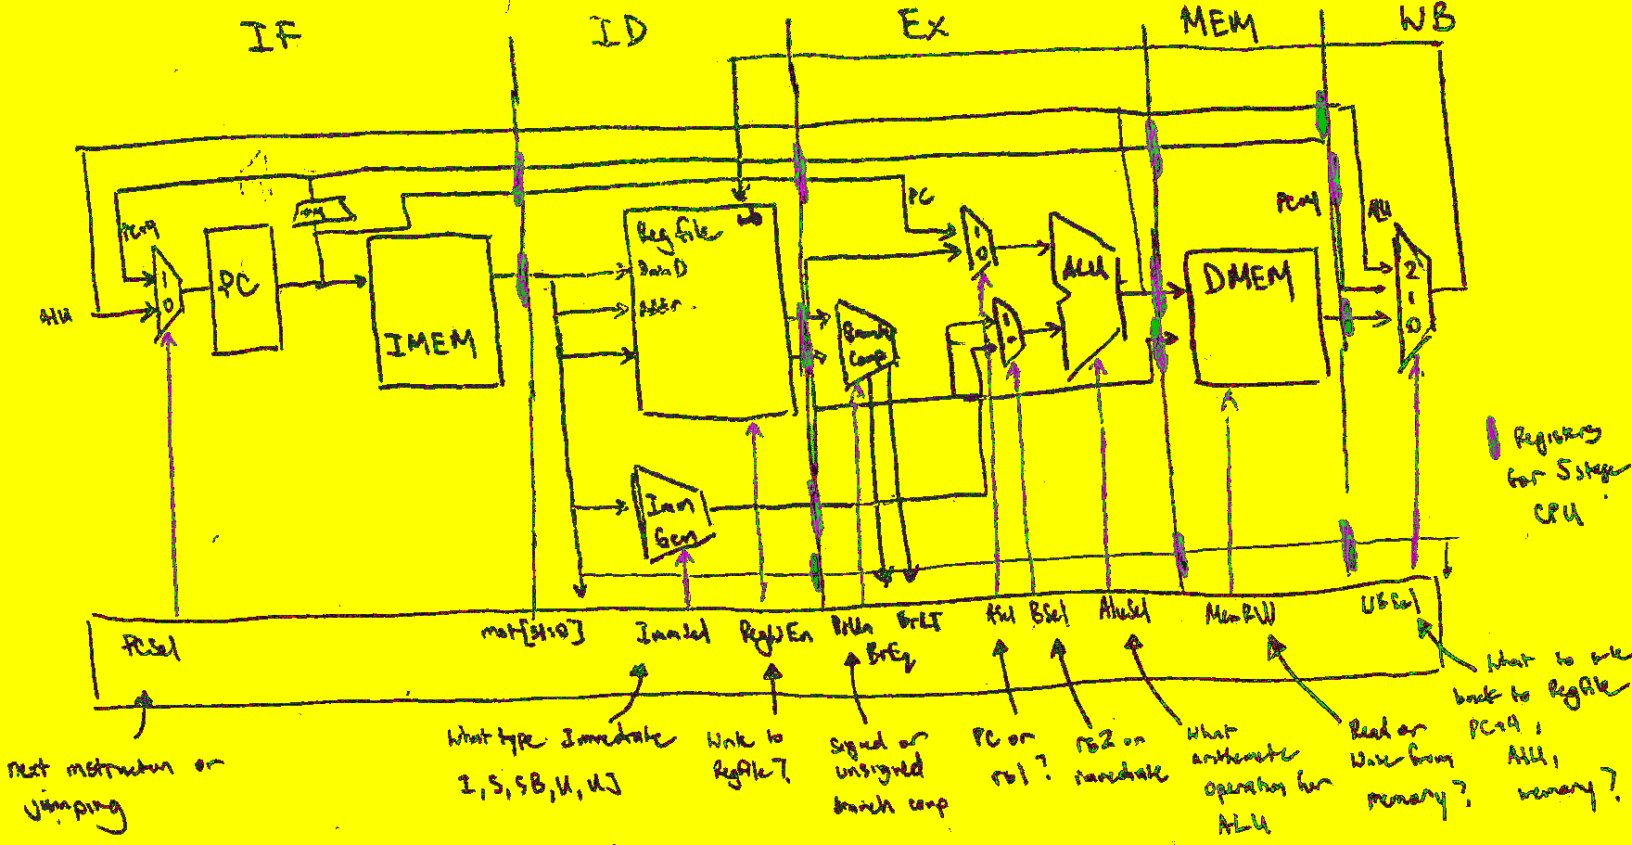 IF ID Ex MEM WB
PC+4
ALU
1
0
PC
IMEM
Reg file
wb
DataD
Addr
Imm
Gen
Branch
Comp
PC
1
0
1
0
ALU
DMEM
PC+4
ALU
2
1
0
Registers
for 5 stage
CPU
PCSel
inst[31:0]
ImmSel
RegWEn
BrUn
BrEq
BrLT
ASel
BSel
AluSel
MemRW
WBSel
next instruction or
jumping
What type Immediate
I, S, SB, U, UJ
Write to
Regfile?
Signed or
unsigned
branch comp
PC or
rs1?
rs2 or
immediate
What
arithmetic
operation for
ALU
Read or
Write from
memory?
What to write
back to Regfile
PC+4,
ALU,
memory?